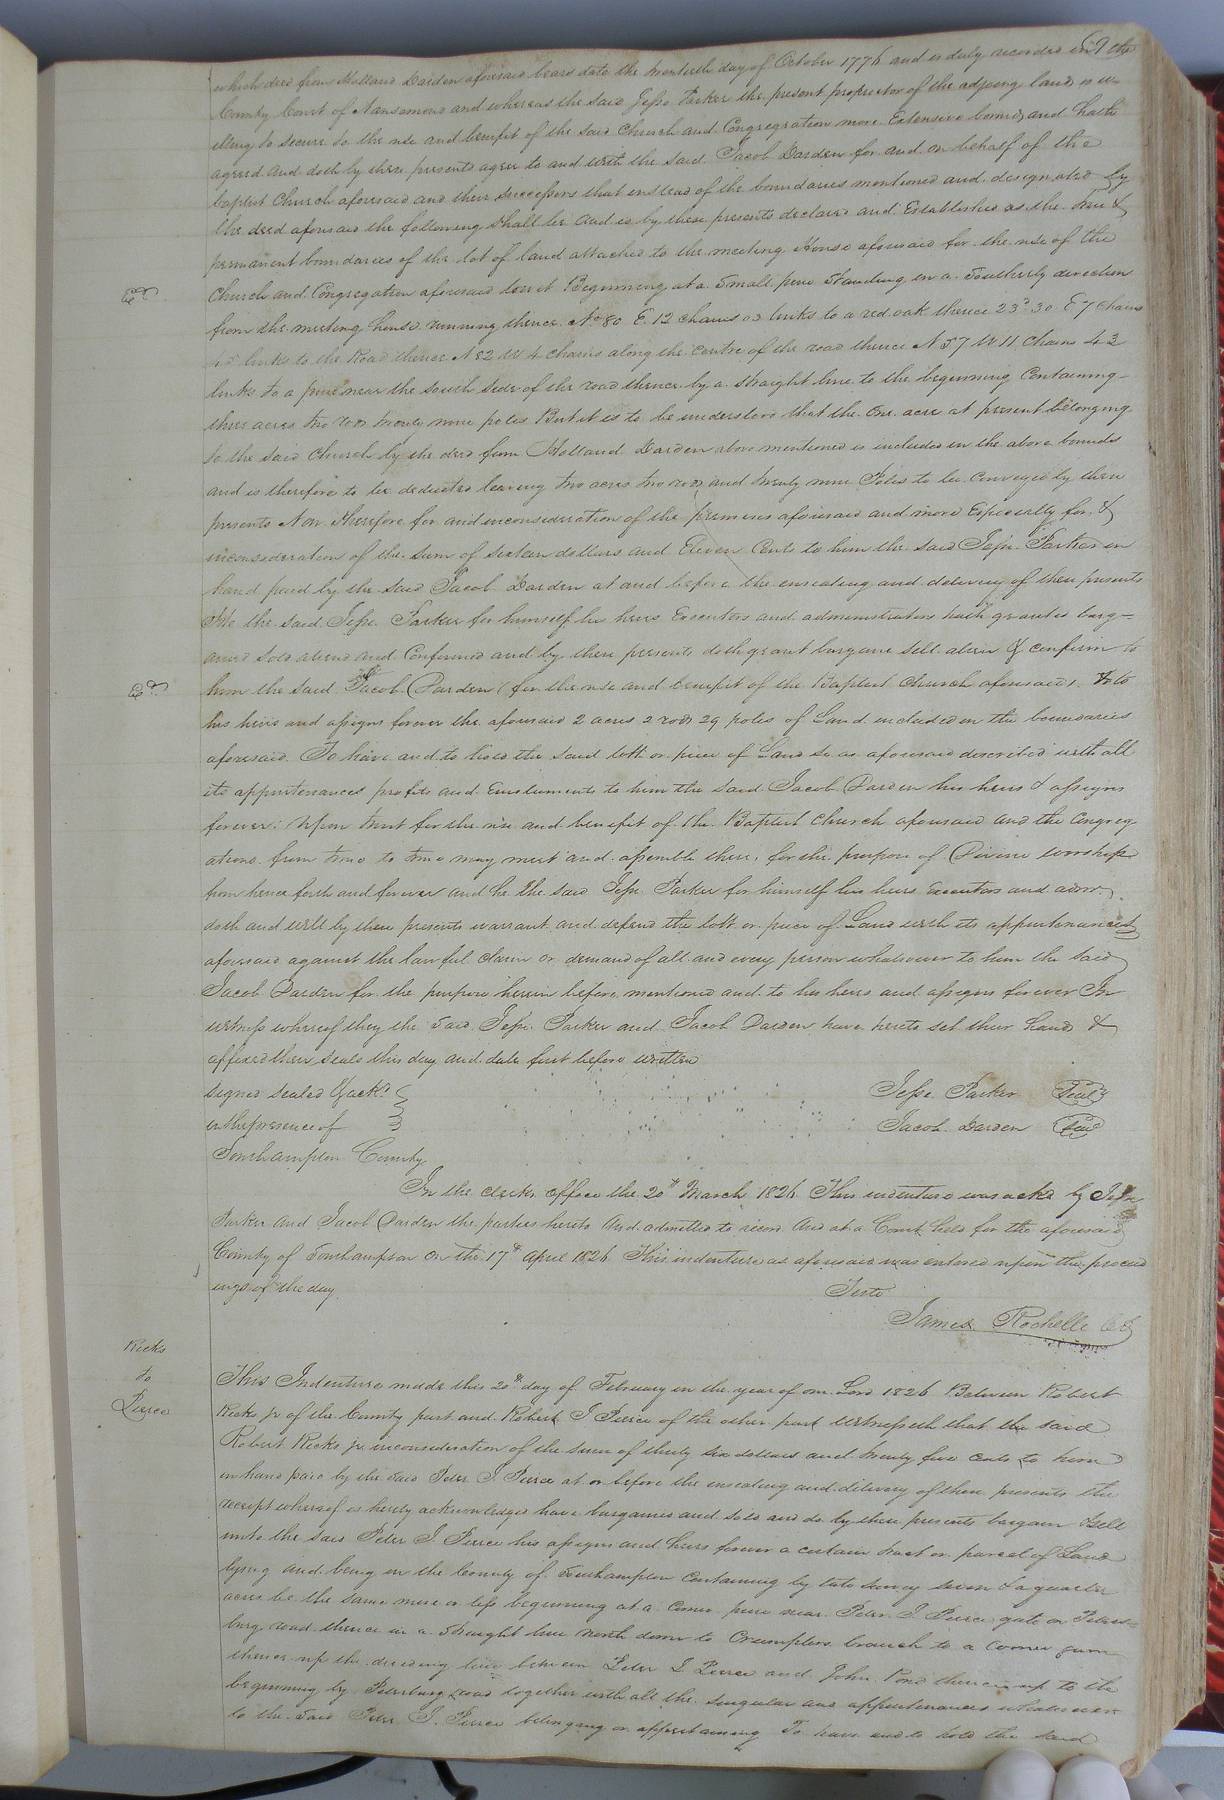 69
which deed from Holland Darden aforesaid bears date the day of October 1776 and is duly recorded in the
County Court of Nansemond and whereas the said Jesse Parker the present proprietor of the adjoing land is wi
lling to secure to the use and benefit of the said Church and Congregation more Extensive bounds and hath
agreed and doth by these presents agree to and with the said Jacob Darden for and on behalf of the
baptist Church aforesaid and their successors that instead of the boundaries mentioned and designated by
the deed aforesaid the following shall be and is by these presents declared and Established as the true &
permanent boundaries of the lot of land attached to the meeting House aforesaid for the use of the
Church and Congregation aforesaid towit Beginning at a Small pine Standing in a Southerly direction
from the meeting house running thence No 80 E. 12 chains 03 links to a red oak thence 23d 30 E 7 chains
links to the Road thence N 82 W 4 chains along the centre of the road thence N 57 W 11 Chains 43
links to a pine near the south side of the road thence by a straight line to the beginning Containing
three acres two rods twenty nine poles But it is to be understood that the One acre at present belonging
to the said Church by the deed from Holland Darden above mentioned is included in the above bounds
and is therefore to be deducted leaving two acres two rods and twenty nine Poles to be Conveyed by these
presents Now Therefore for and inconsideration of the premises aforesaid and more Especially for &
inconsideration of the sum of sixteen dollars and Eleven Cents to him the said Jesse Parker in
hand paid by the said Jacob Darden at and before the ensealing and delivery of these presents
He the said Jesse Parker for himself his heirs Executors and administrators hath granted barg-
ained sold aliend and Confirmed and by these presents doth grant bargain sell alien & confirm to
him the said Jacob Darden (for the use and benefit of the Baptist Church aforesaid) & to
his heirs and assigns forever the aforesaid 2 acres 2 rods 29 poles of Land included in the boundaries
aforesaid. To have and to hold the said lott or piece of Land so as aforesaid described with all
its appurtenances profits and Emoluments to him the said Jacob Darden his heirs & assigns
forever: Upon trust for the use and benefit of the Baptist Church aforesaid and the Congreg
ations from time to time may meet and assemble there, for the purpose of Divine worship
from hence forth and forever and he the said Jesse Parker for himself his heirs Executors and admr.
doth and will by these presents warrant and defend the lott or piece of Land with its appurtenances
aforesaid against the lawful claim or demand of all and every person whatsoever to him the said
Jacob Darden for the purpose herein before mentioned and to his heirs and assigns forever In
witness whereof they the said Jesse Parker and Jacob Darden have hereto set their hand &
affixed their seals this day and date first before written
signed sealed & ackd. Jesse Parker Seal
in the presence of Jacob Darden Seal
Southampton County
In the clerks office the 20th March 1826 This indenture was ackd by Jesse
Parker and Jacob Darden the parties hereto and admitted to record And at a Court held for the aforesaid
County of Southampton On the 17th April 1826 This indenture as aforesaid was entered upon the proceed
ings of the day.
Teste
James Rochelle CC
Ricks
to
Pierce
This Indenture made this 20th day of February in the year of our Lord 1826 Between Robert
Ricks jr of the County part and Robert J Pierce of the other part Witnesseth that the said
Robert Ricks jr inconsideration of the sum of thirty six dollars and twenty five cents to him
in hand paid by the said Peter J. Pierce at or before the ensealing and delivery of these presents the
receipt whereof is hereby acknowledged have bargained and sold and do by these presents bargain & sell
unto the said Peter J. Pierce his assigns and heirs forever a certain tract or parcel of Land
lying and being in the County of Southampton Containing by late survey seven & a quarter
acres be the same more or less beginning at a Corner pine near Peter J. Pierce gate on Peters-
burg road thence in a straight line North down to Crumplers branch to a corner gum
thence up the dividing line between Peter J Pierce and John Pond thence up to the
beginning by Petersburg road together with all the singular and appurtenances whatsoever
to the said Peter J. Pierce belonging or appertaining To have and to hold the said